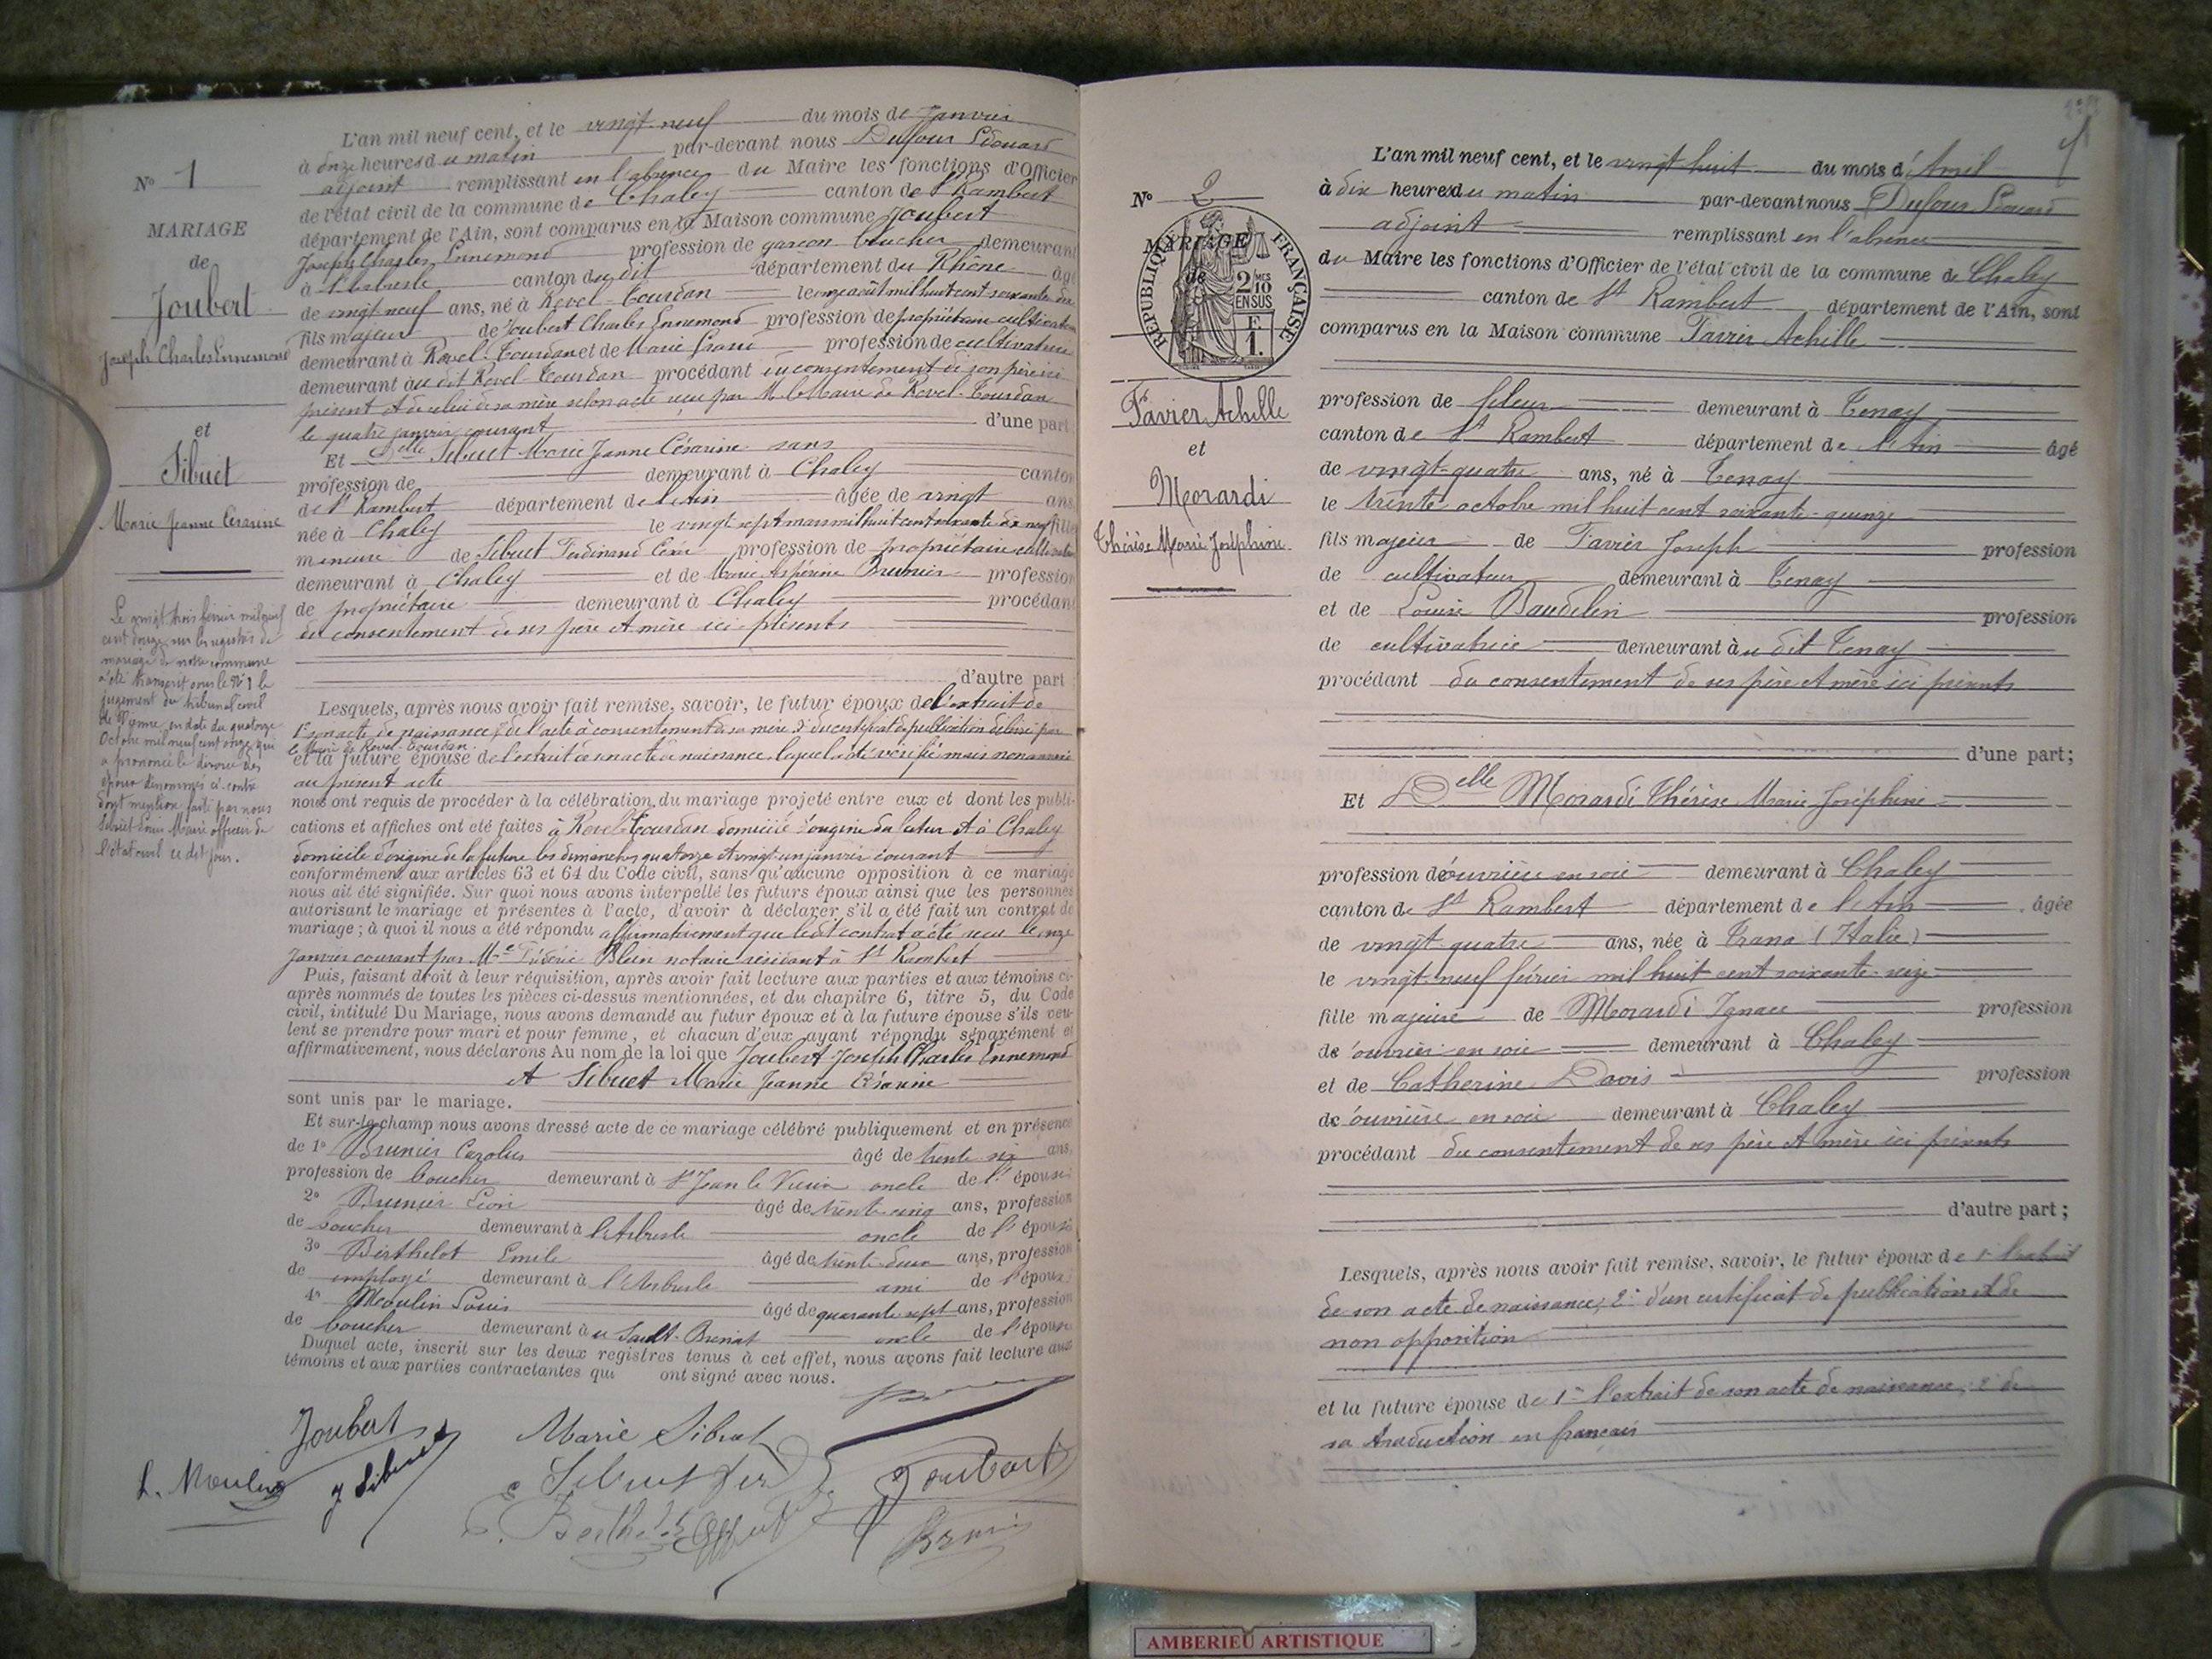 N° 1
MARIAGE
de
Joubert
Joseph Charles Ennemond
et
Sibuet
Marie Jeanne Césarine
Le vingt trois février mil neuf
cent douze sur les registres de
mariage de notre commune
a été transcrit sous le N° 1 le
jugement du tribunal civil
de Vienne, en date du quatorze
Octobre mil neuf cent onze qui
a prononcé le divorce des
époux dénommés ci-contre
dont mention faite par nous
Sibuet Maire officier de
l'état civil ce dit jour.
L'an mil neuf cent, et le vingt-neuf du mois de Janvier
à onze heures du matin par-devant nous Dufour Edouard
adjoint remplissant en l'absence du Maire les fonctions d'Officier
de l'état civil de la commune de Chaley canton de St Rambert
département de l'Ain, sont comparus en la Maison commune Joubert
Joseph Charles Ennemond profession de garçon boucher demeurant
à l'Arbresle canton du dit département du Rhône âgé
de vingt neuf ans, né à Revel-Tourdan le onze août mil huit cent soixante dix
fils majeur de Joubert Charles Ennemond profession de propriétaire cultivateur
demeurant à Revel-Tourdan et de Marie profession de cultivatrice
demeurant au dit Revel-Tourdan procédant du consentement de son père ici
présent et de celui de sa mère selon acte reçu par M. le Maire de Revel-Tourdan
le quatre janvier courant d'une part
Et Delle Sibuet Marie Jeanne Césarine sans
profession de demeurant à Chaley canton
de St Rambert département de l'Ain âgée de vingt ans
née à Chaley le vingt sept mars mil huit cent soixante dix neuf fille
mineure de Sibuet Ferdinand profession de propriétaire cultivateur
demeurant à Chaley et de Marie Brunier profession
de propriétaire demeurant à Chaley procédant
du consentement de ses père et mère ici présents
d'autre part
Lesquels, après nous avoir fait remise, savoir, le futur époux de l'extrait de
1° son acte de naissance, 2° de l'acte de consentement de sa mère 3° du certificat de publication délivré par
le Maire de Revel-Tourdan
et la future épouse de l'extrait de son acte de naissance, lequel a été vérifié mais non annexé
au présent acte
nous ont requis de procéder à la célébration du mariage projeté entre eux et dont les publi-
cations et affiches ont été faites à Revel-Tourdan domicile d'origine du futur et à Chaley
domicile d'origine de la future les dimanches quatorze et vingt un janvier courant
conformément aux articles 63 et 64 du Code civil, sans qu'aucune opposition à ce mariage
nous ait été signifiée. Sur quoi nous avons interpellé les futurs époux ainsi que les personnes
autorisant le mariage et présentes à l'acte, d'avoir à déclarer s'il a été fait un contrat de
mariage ; à quoi il nous a été répondu affirmativement que ledit contrat a été reçu le onze
Janvier courant par Me Frédéric Blein notaire résidant à St Rambert
Puis, faisant droit à leur réquisition, après avoir fait lecture aux parties et aux témoins ci-
après nommés de toutes les pièces ci-dessus mentionnées, et du chapitre 6, titre 5, du Code
civil, intitulé Du Mariage, nous avons demandé au futur époux et à la future épouse s'ils veu-
lent se prendre pour mari et pour femme, et chacun d'eux ayant répondu séparément et
affirmativement, nous déclarons Au nom de la loi que Joubert Joseph Charles Ennemond
et Sibuet Marie Jeanne Césarine
sont unis par le mariage.
Et sur-le-champ nous avons dressé acte de ce mariage célébré publiquement et en présence
de 1° Brunier Carolus âgé de trente six ans,
profession de boucher demeurant à St Jean le Vieux oncle de l'épouse
2° Brunier Léon âgé de trente cinq ans, profession
de boucher demeurant à l'Arbresle oncle de l'épouse
3° Berthelot Emile âgé de trente deux ans, profession
de employé demeurant à l'Arbresle ami de l'époux
4° Moulin Louis âgé de quarante sept ans, profession
de boucher demeurant à u Sault-Brenaz oncle de l'épouse
Duquel acte, inscrit sur les deux registres tenus à cet effet, nous avons fait lecture aux
témoins et aux parties contractantes qui ont signé avec nous.
Joubert
Marie Sibuet
L. Moulin
J Sibuet
Sibuet Ferd
Joubert
E. Berthelot
N° 2
MARIAGE
de
RÉPUBLIQUE FRANÇAISE
2 MES
2/10
EN SUS
F.
1.
Favier Achille
et
Morardi
Thérèse Marie Joséphine
L'an mil neuf cent, et le vingt huit du mois d'Avril
à dix heures du matin par-devant nous Dufour Edouard
adjoint remplissant en l'absence
du Maire les fonctions d'Officier de l'état civil de la commune de Chaley
canton de St Rambert département de l'Ain, sont
comparus en la Maison commune Favier Achille
profession de fileur demeurant à Tenay
canton de St Rambert département de l'Ain âgé
de vingt-quatre ans, né à Tenay
le trente octobre mil huit cent soixante-quinze
fils majeur de Favier Joseph profession
de cultivateur demeurant à Tenay
et de Louise Baudelin profession
de cultivatrice demeurant à u dit Tenay
procédant du consentement de ses père et mère ici présents
d'une part;
Et Delle Morardi Thérèse Marie Joséphine
profession d'ouvrière en soie demeurant à Chaley
canton de St Rambert département de l'Ain âgée
de vingt quatre ans, née à Trana (Italie)
le vingt-neuf février mil huit cent soixante-seize
fille majeure de Morardi Ignace profession
de ouvrier en soie demeurant à Chaley
et de Catherine Davis profession
de ouvrière en soie demeurant à Chaley
procédant du consentement de ses père et mère ici présents
d'autre part ;
Lesquels, après nous avoir fait remise, savoir, le futur époux de 1° l'extrait
de son acte de naissance; 2° d'un certificat de publication et de
non opposition
et la future épouse de 1° l'extrait de son acte de naissance; 2° de
sa traduction en français
AMBERIEU ARTISTIQUE